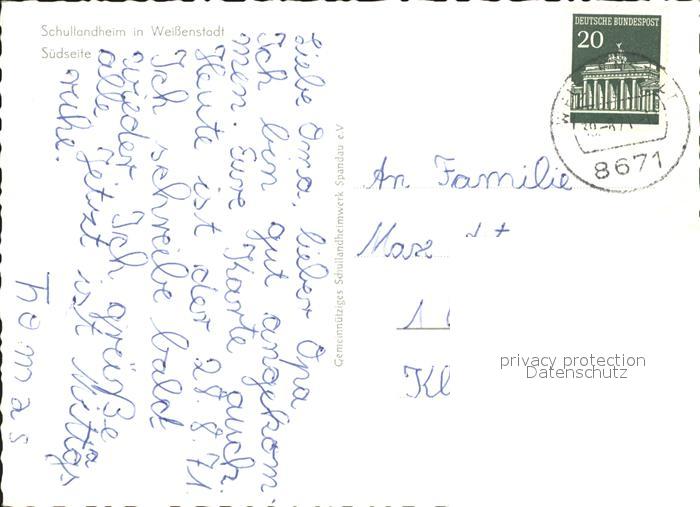 Schullandheim in Weißenstadt
Südseite
Liebe Oma, lieber Opa
Ich bin gut angekom-
men. Eure Karte auch.
Heute ist der 28.8.71.
Ich schreibe bald
wieder. Ich grüße
alle. Jetzt ist Mittags
ruhe.
Thomas
Gemeinnütziges Schullandheimwerk Spandau e.V
DEUTSCHE BUNDESPOST
20
8671
An Familie
Max
1
Kl
privacy protection
Datenschutz